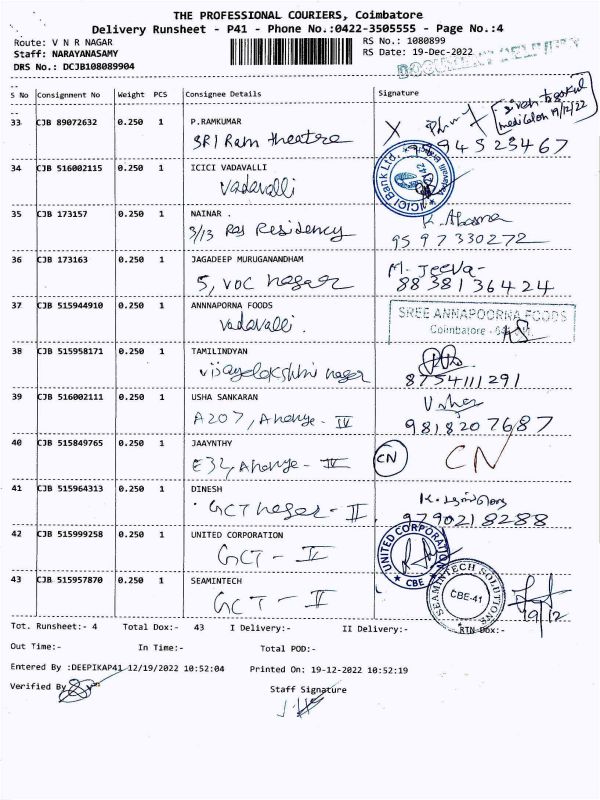 THE PROFESSIONAL COURIERS, Coimbatore
Delivery Runsheet - P41 - Phone No.:0422-3505555 - Page No.:4
Route: V N R NAGAR RS No.: 1080899
Staff: NARAYANASAMY RS Date: 19-Dec-2022
DRS No.: DCJB108089904 DOCUMENT DELIVERY
S No Consignment No Weight PCS Consignee Details Signature
33 CJB 89072632 0.250 1 P.RAMKUMAR
SRI Ram theatre 94523467
19/12/22
34 CJB 516002115 0.250 1 ICICI VADAVALLI
Vadavalli
ICICI Bank Ltd.
35 CJB 173157 0.250 1 NAINAR .
3/13 Residency 9597330272
36 CJB 173163 0.250 1 JAGADEEP MURUGANANDHAM M. Jeeva-
5, VOC nagar 8838136424
37 CJB 515944910 0.250 1 ANNNAPORNA FOODS SREE ANNAPOORNA FOODS
Vadavalli. Coimbatore - 641
38 CJB 515958171 0.250 1 TAMILINDYAN
Vijayalakshmi nagar 8754111291
39 CJB 516002111 0.250 1 USHA SANKARAN Usha
A207, Ananya - IV 9818207687
40 CJB 515849765 0.250 1 JAAYNTHY
E32, Ananya - IV CN CN
41 CJB 515964313 0.250 1 DINESH
GCT nagar - II 9790218288
42 CJB 515999258 0.250 1 UNITED CORPORATION
GCT - II UNITED CORPORATION CBE
43 CJB 515957870 0.250 1 SEAMINTECH
GCT - II SEAMINTECH SOLUTIONS CBE-41 19/12
Tot. Runsheet:- 4 Total Dox:- 43 I Delivery:- II Delivery:- RTN Dox:-
Out Time:- In Time:- Total POD:-
Entered By :DEEPIKAP41 12/19/2022 10:52:04 Printed On: 19-12-2022 10:52:19
Verified By Staff Signature